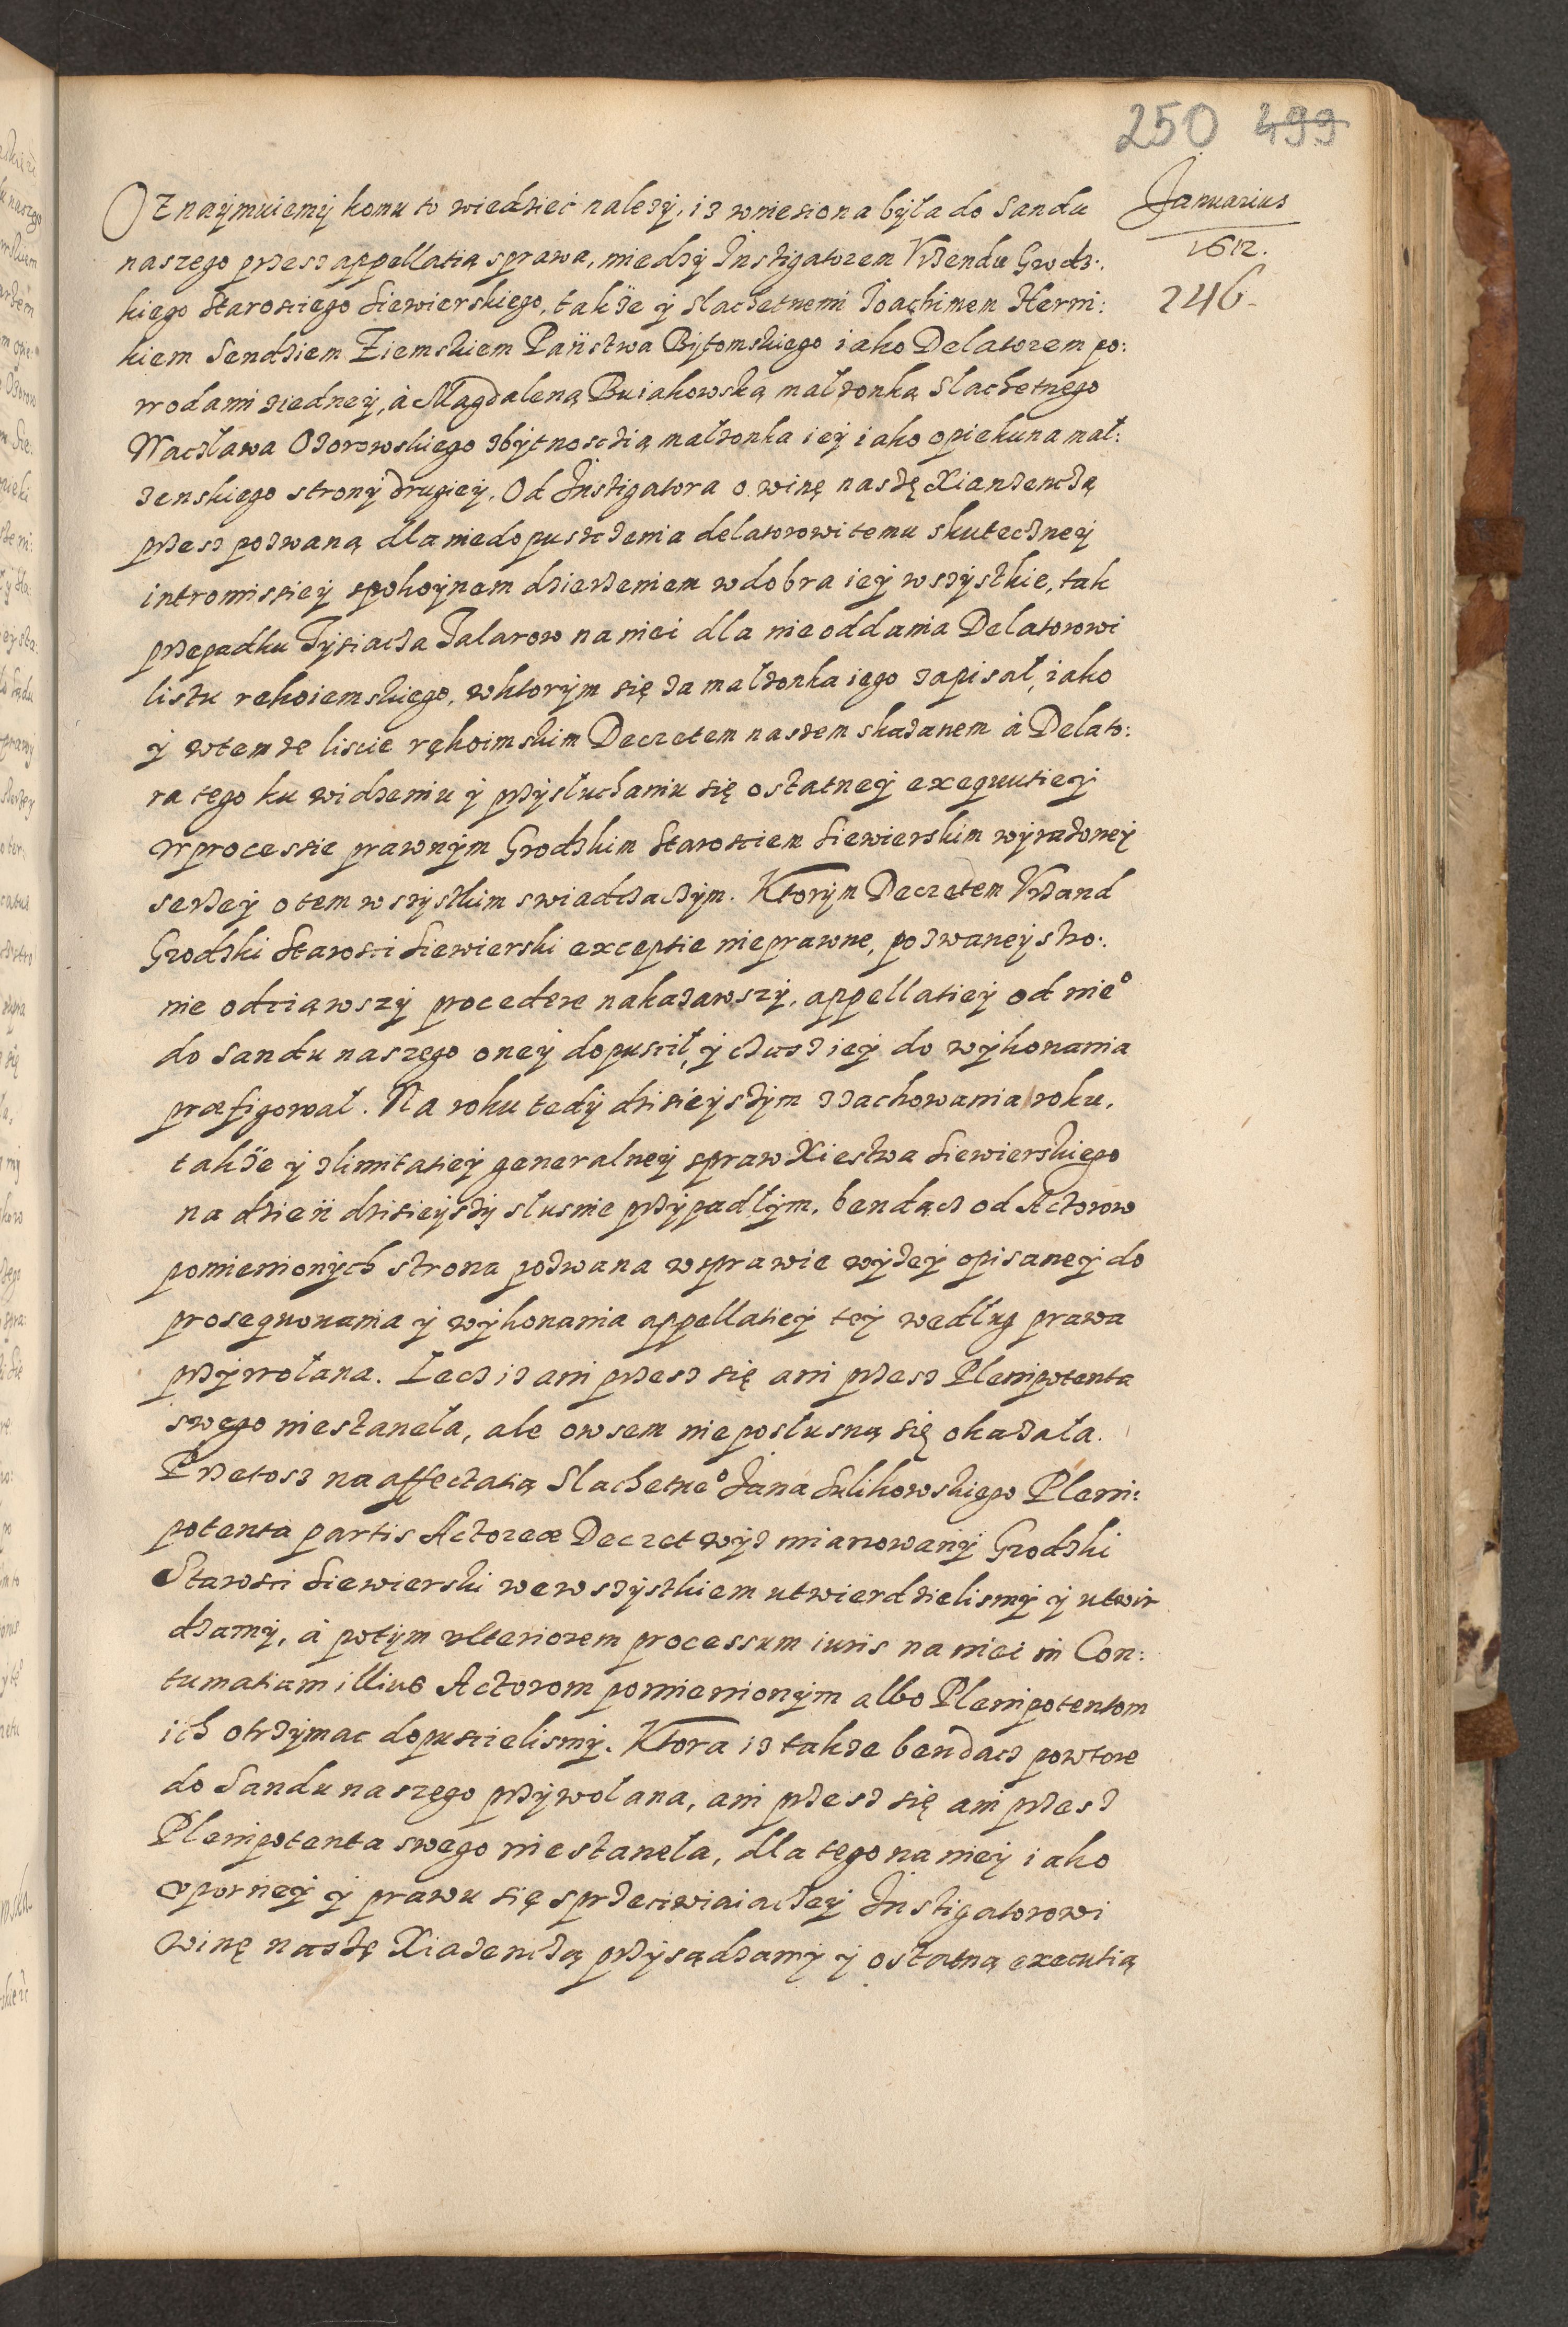 250 499
Januarius
1612.
246.
Oznaÿmuiemÿ komu to wiedziec należÿ, iż wniesiona bÿła do Sandu
naszego przez appellatią sprawa, miedzÿ Instigatorem Vrzendu Grodz:
kiego Starosciego Siewierskiego, także ÿ slachetnemi Joachimem Herni:
kiem Sendziem Ziemskiem Państwa Bÿtomskiego iako Delatorem po:
wodami ziedneÿ, à Magdaleną Buiakowską małżonką Slachetnego
Wacława Ożorowskiego zbÿtnosczią małżonka ieÿ iako opiekuna mał:
żenskiego stronÿ drugieÿ. Od Instigatora o winę naszę Xianżenczą
przez pozwaną dla niedopuszczenia delatorowi temu skuteczneÿ
intromissieÿ spokoÿnem dzierżeniem w dobra ieÿ wszÿstkie, tak
przepadku Tysiącza Talarow na niei dla nie oddania Delatorowi
listu rekoiemskiego, w ktorÿm się za małżonka iego zapisał, iako
ÿ wtemże liscie rękoimskim Decretem naszem skazanem à Delato:
ra tego ku widzeniu ÿ przÿsłuchaniu się ostatneÿ exequutieÿ
w processie prawnÿm Grodzkim Starosciem Siewierskim wÿrażoneÿ
szerzeÿ o tem wszÿstkim swiadczaczÿm. Ktorÿm Decretem Vrzand
Grodzki Starosci Siewierski exceptie nieprawne, pozwaneÿ stro:
nie odciąwszÿ procedere nakazawszÿ, appellatieÿ od nie⁰
do Sandu naszego oneÿ dopuscił, ÿ czasz ieÿ do wÿkonania
præfigował. Na roku tedÿ dzisieÿszÿm z zachowania roku,
także ÿ zlimitatieÿ generalneÿ spraw Xiestwa Siewierskiego
na dzień dzisieÿszÿ slusnie przÿpadłÿm, bendącz od Actorow
pomienionÿch strona pozwana w sprawie wÿżeÿ opisaneÿ do
prosequowania ÿ wÿkonania appellatieÿ teÿ według prawa
przÿwołana. Lecz iż ani przez się ani przez Plenipotenta
swego niestaneła, ale owsem nieposłusną się okazała.
Przetosz na affectatią Slachetne⁰ Jana Sulikowskiego Pleni:
potenta partis Actoreæ Decret wÿż mianowanÿ Grodzki
Starosci Siewierski we wszÿstkiem utwierdzielismÿ ÿ utwir
dzamÿ, à potÿm vlteriorem processum iuris na niei in Con:
tumatiam illius Actorom pomienionÿm albo Plenipotentom
ich otrzÿmac dopuscielismÿ. Ktora iż także bendacz powtore
do Sandu naszego przÿwołana, ani przez się ani przez
Plenipotenta swego niestaneła, dla tego na nieÿ iako
oporneÿ ÿ prawu się sprzeciwiaiaczeÿ Instigatorowi
winę naszę Xiażenczą przÿsądzamÿ ÿ ostatną executią